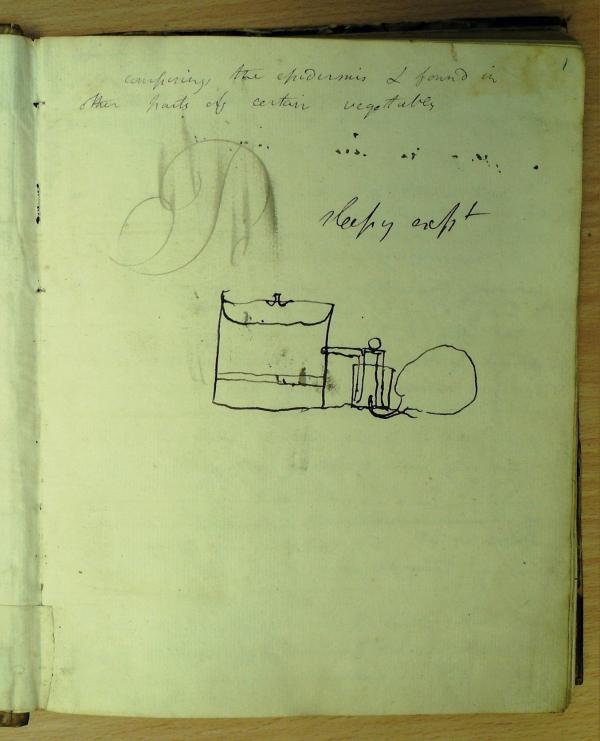 1
composing the epidermis & found in
other parts of certain vegetables
sleepy expt